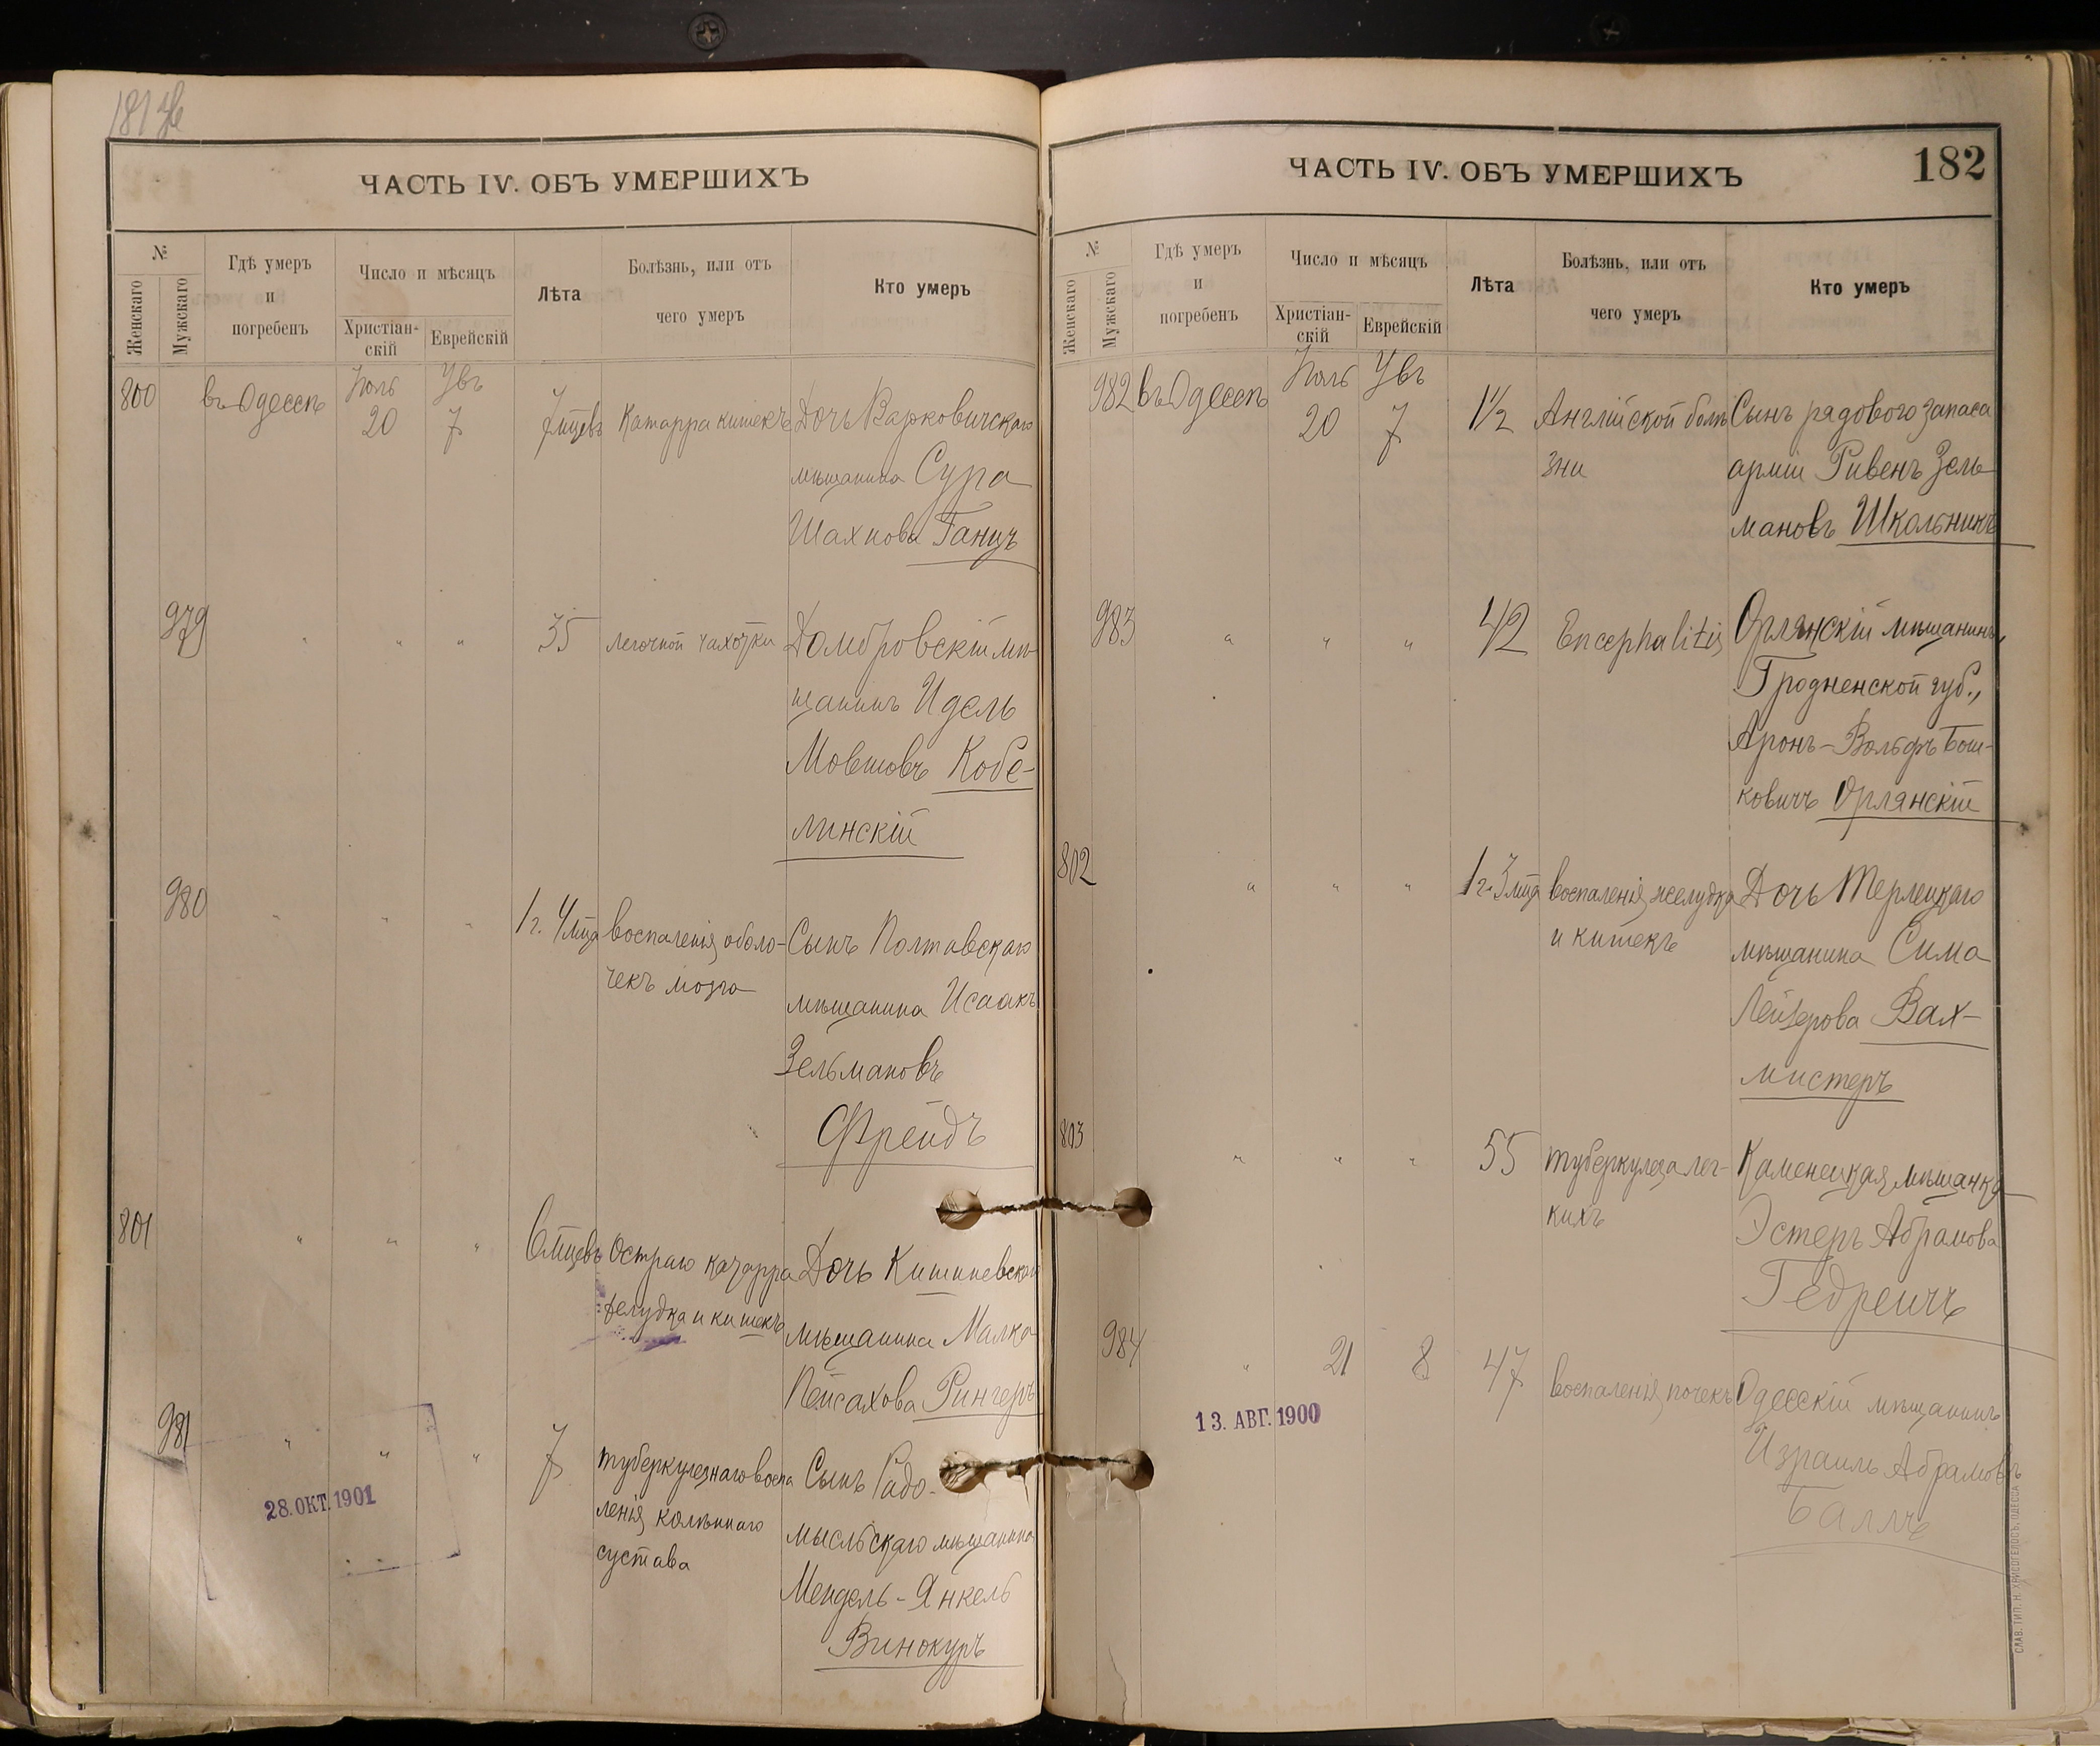 ЧАСТЬ IV. ОБЪ УМЕРШИХЪ
№
Женскаго
Мужскаго
Гдѣ умеръ
и
погребенъ
Число и мѣсяцъ
Христіан-
скій
Еврейскій
Лѣта
Болѣзнь, или отъ
чего умеръ
Кто умеръ
800
въ Одессѣ
Іюль
20
Увъ
7
7 мцевъ
Катарра кишекъ
Дочь Варковичскаго
мѣщанина Сура
Шахнова Ганцъ
979
" " "
35
легочной чахотки
Домбровскій мѣ-
щанинъ Идель
Мовшовъ Кобе-
линскій
980
" " "
1 г. 4 мца
воспаленія оболо-
чекъ мозга
Сынъ Полтавскаго
мѣщанина Исаакъ
Зельмановъ
Фрейдъ
801
" " "
6 мцевъ
Остраго катарра
желудка и кишекъ
Дочь Кишиневскаго
мѣщанина Малка
Пейсахова Рингеръ
981
" " "
7
туберкулезнаго воспа
ленія колѣннаго
сустава
Сынъ Радо-
мысльскаго мѣщанина
Мендель-Янкель
Винокуръ
28. ОКТ. 1901
ЧАСТЬ IV. ОБЪ УМЕРШИХЪ
182
№
Женскаго
Мужскаго
Гдѣ умеръ
и
погребенъ
Число и мѣсяцъ
Христіан-
скій
Еврейскій
Лѣта
Болѣзнь, или отъ
чего умеръ
Кто умеръ
982
въ Одессѣ
Іюль
20
Увъ
7
1½
Англійской болѣ
зни
Сынъ рядового запаса
арміи Ривенъ Зель-
мановъ Школьникъ
983
" " "
42
Encephalitis
Орлянскій мѣщанинъ,
Гродненской губ.,
Аронъ-Вольфъ Бош-
ковичъ Орлянскій
802
" " "
1 г. 3 мца
воспаленія желудка
и кишекъ
Дочь Терлецкаго
мѣщанина Сима
Лейзерова Вах-
мистеръ
803
" " "
55
туберкулеза лег-
кихъ
Каменецкая мѣщанка
Эстеръ Абрамова
Гедреичъ
984
"
21
8
47
воспаленія почекъ
Одесскій мѣщанинъ
Израиль Абрамовъ
Баллъ
13. АВГ. 1900